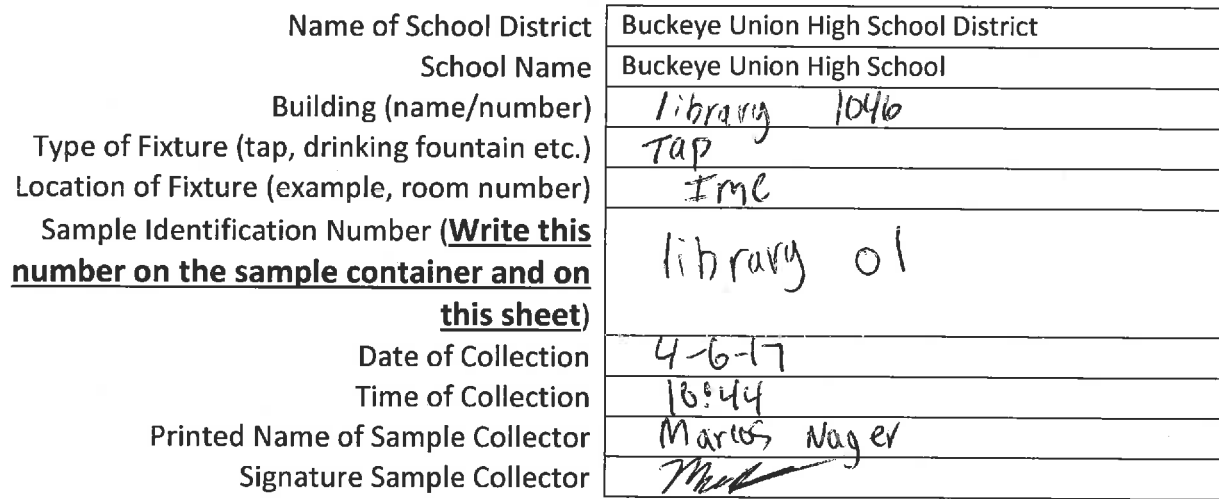 Name of School District Buckeye Union High School District
School Name Buckeye Union High School
Building (name/number) library 1046
Type of Fixture (tap, drinking fountain etc.) Tap
Location of Fixture (example, room number) Imc
Sample Identification Number (Write this
number on the sample container and on
this sheet) library 01
Date of Collection 4-6-17
Time of Collection
Printed Name of Sample Collector Marcos Nager
Signature Sample Collector